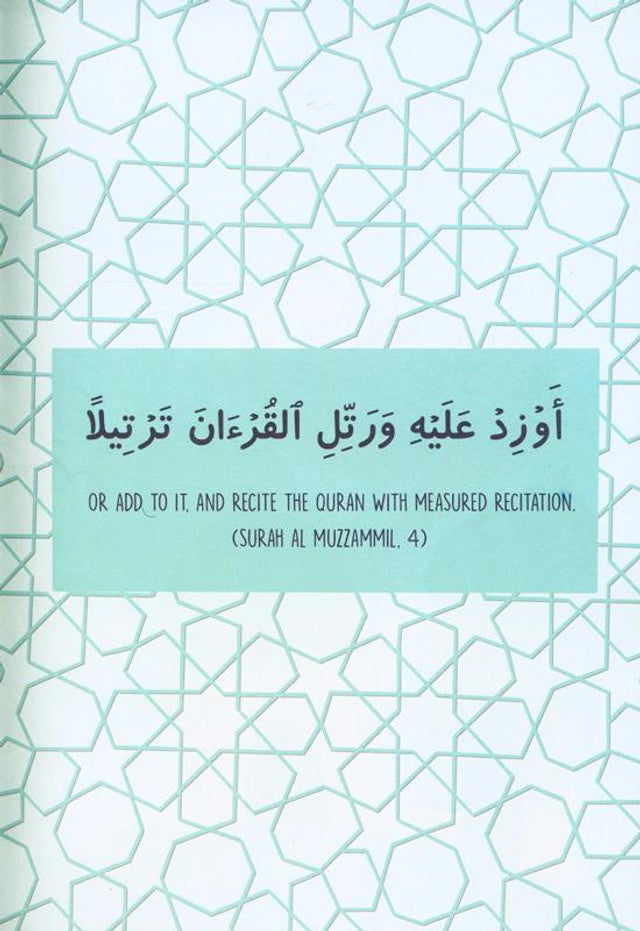 أَوۡ زِدۡ عَلَيۡهِ وَرَتِّلِ ٱلۡقُرۡءَانَ تَرۡتِيلًا
OR ADD TO IT, AND RECITE THE QURAN WITH MEASURED RECITATION.
(SURAH AL MUZZAMMIL, 4)